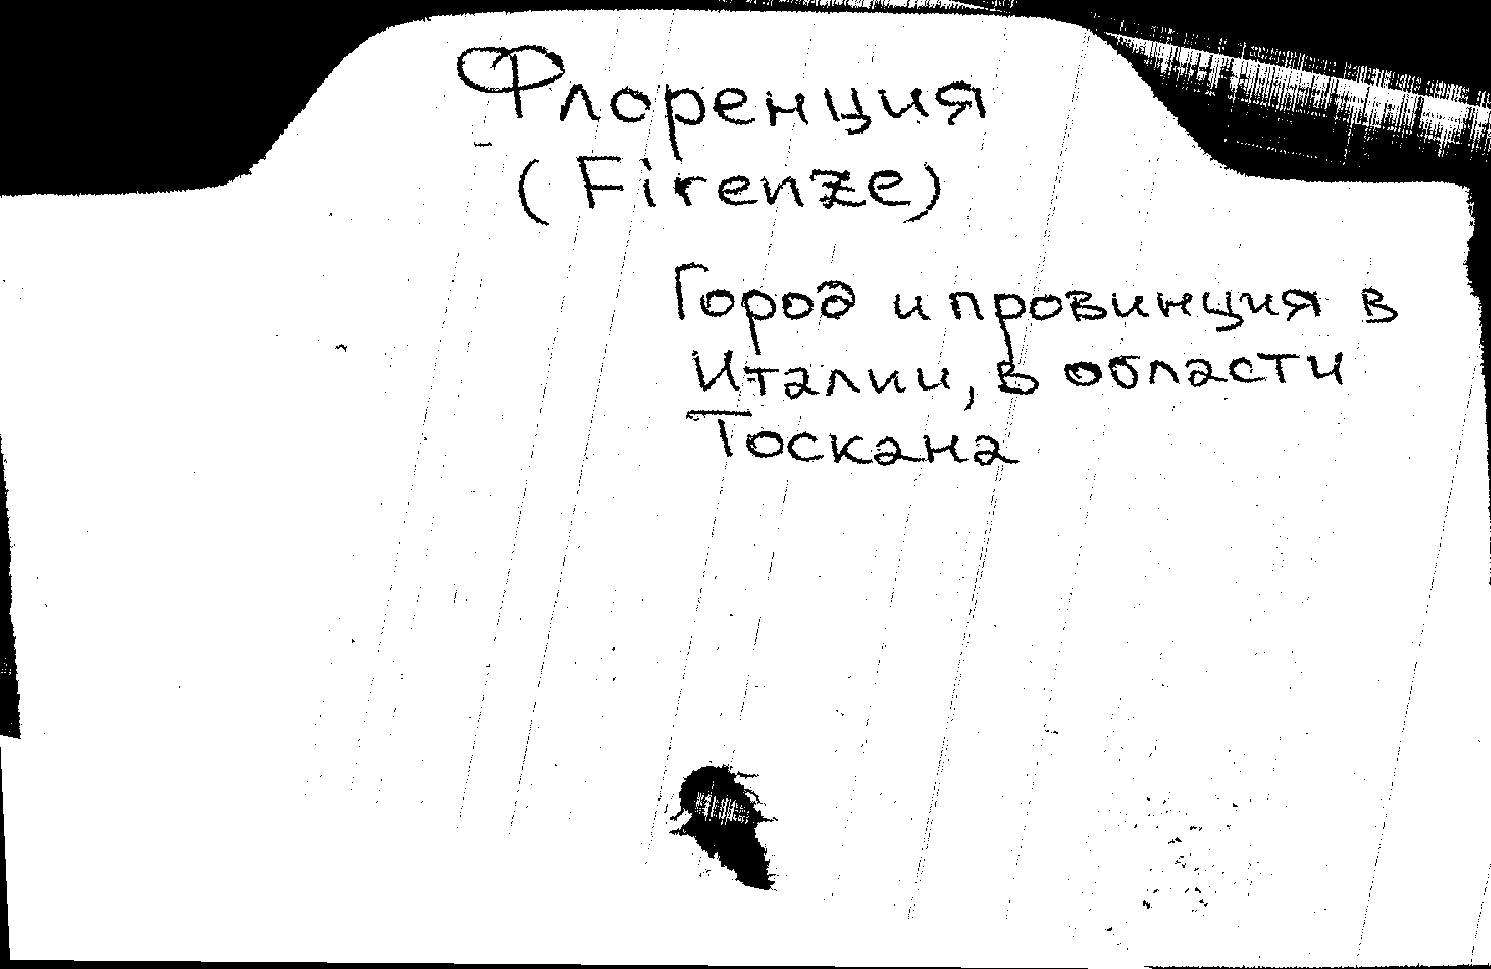 Флоренция
(Firenze)
Город и провинция в
Италии, в области
Тоскана